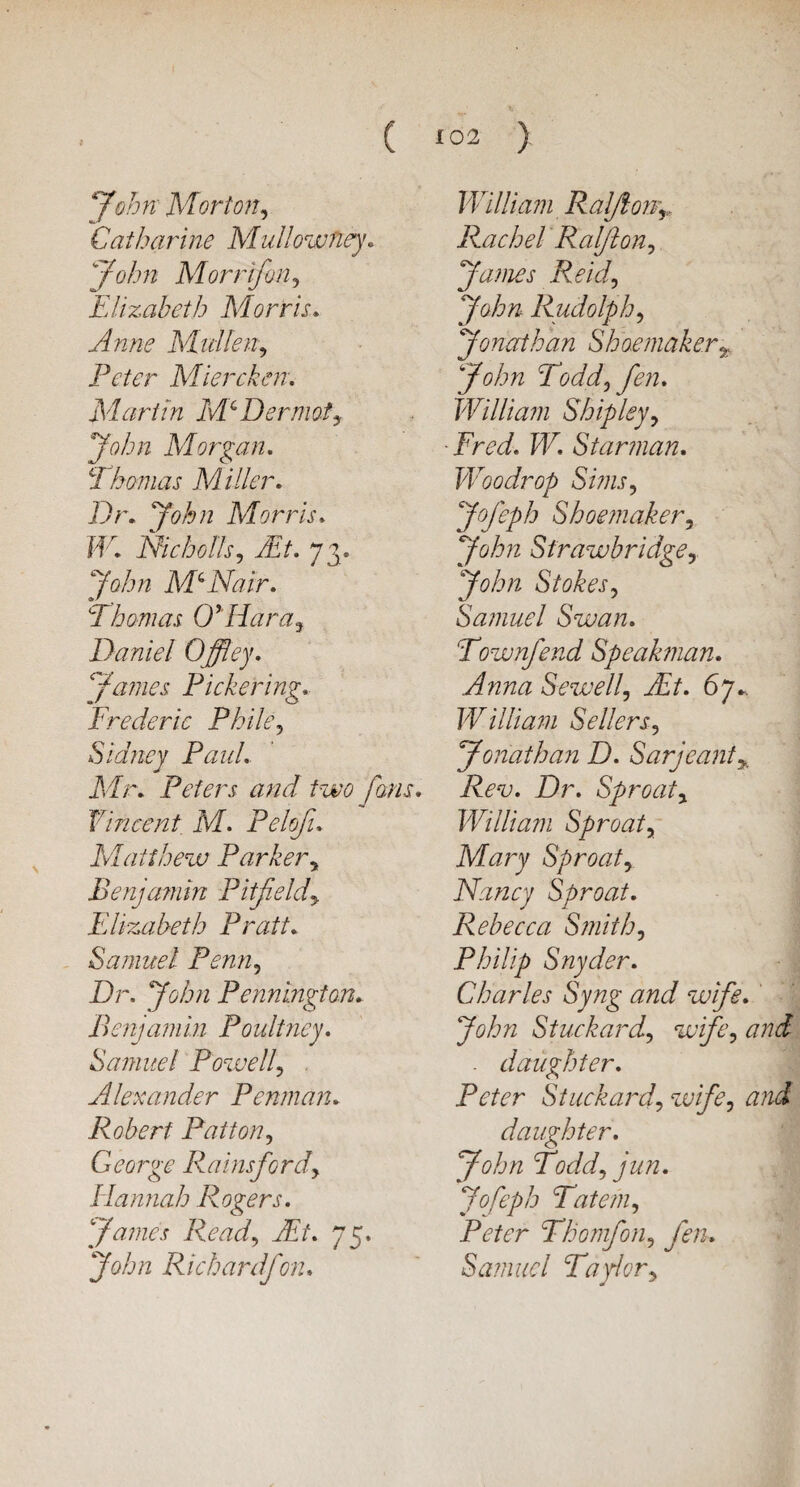 ( 102 )
John Morton,
Catharine Mullowney.
John Morriſon,
Elizabeth Morris.
Anne Mullen,
Peter Miercken.
Martin McDermot,
John Morgan.
Thomas Miller.
Dr. John Morris.
W. Nicholls, Æt. 73.
John McNair.
Thomas O'Hara,
Daniel Offley.
James Pickering.
Frederic Phile,
Sidney Paul.
Mr. Peters and two ſons.
Vincent M. Peloſi.
Matthew Parker,
Benjamin Pitfield,
Elizabeth Pratt.
Samuel Penn,
Dr. John Pennington.
Benjamin Poultney.
Samuel Powell,
Alexander Penman.
Robert Patton,
George Rainsford,
Hannah Rogers.
James Read, Æt. 75.
John Richardſon.
William Ralſton,
Rachel Ralſton,
James Reid,
John Rudolph,
Jonathan Shoemaker,
John Todd, ſen.
William Shipley,
Fred. W. Starman.
Woodrop Sims,
Joſeph Shoemaker,
John Strawbridge,
John Stokes,
Samuel Swan.
Townſend Speakman.
Anna Sewell, Æt. 67.
William Sellers,
Jonathan D. Sarjeant,
Rev. Dr. Sproat,
William Sproat,
Mary Sproat,
Nancy Sproat.
Rebecca Smith,
Philip Snyder.
Charles Syng and wife.
John Stuckard, wife, and
daughter.
Peter Stuckard, wife, and
daughter.
John Todd, jun.
Joſeph Tatem,
Peter Thomſon, ſen.
Samuel Taylor,